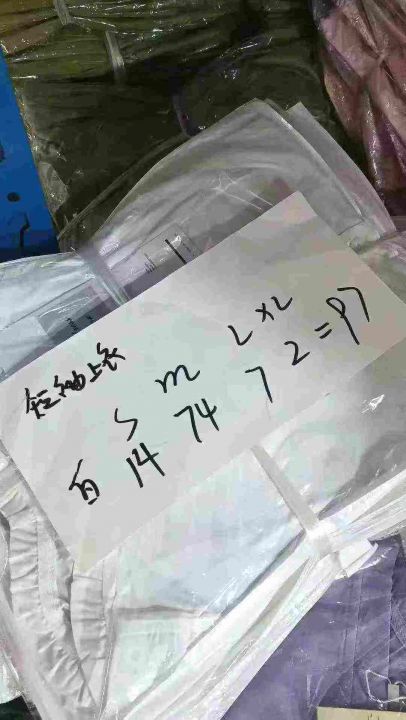 短袖上衣
S m L XL
白 14 74 7 2 = 97